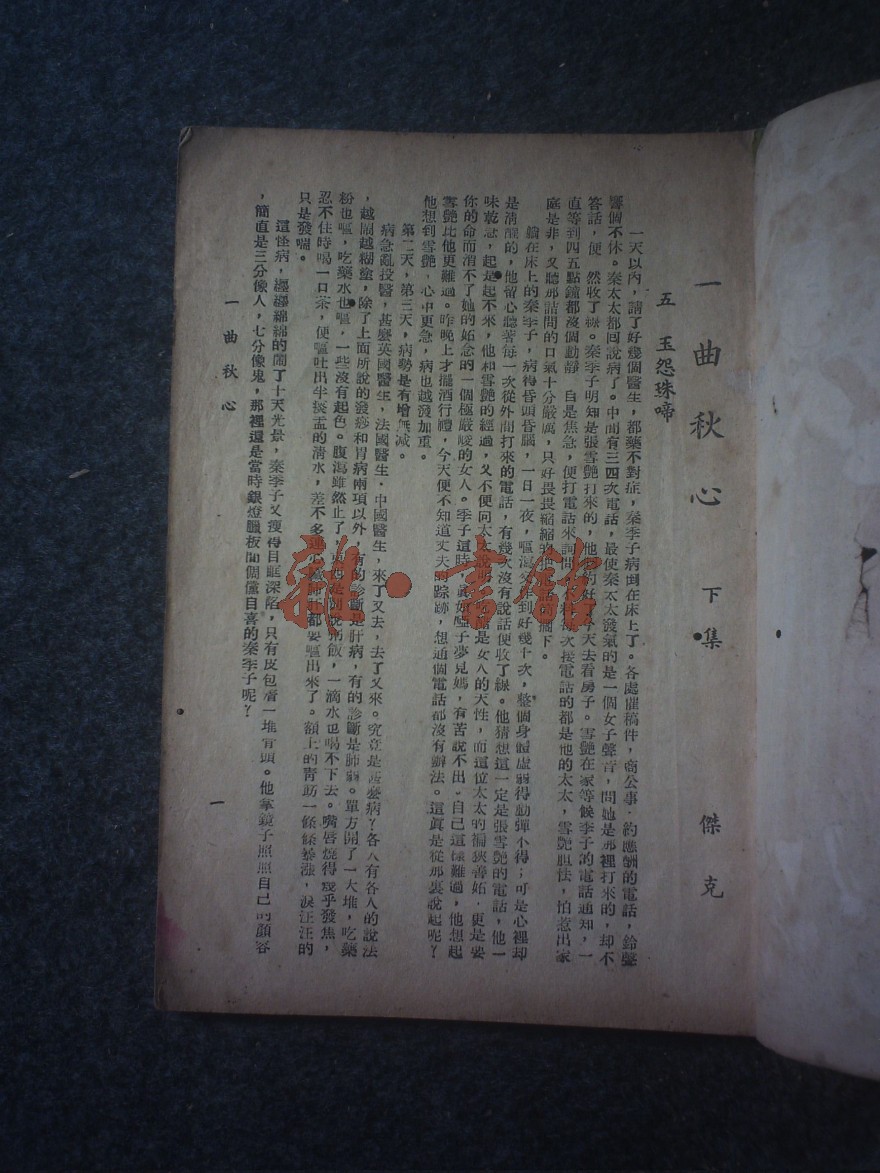 一曲秋心 下集 傑克
五 玉怨珠啼
一天以內，請了好幾個醫生，都藥不對症，秦季子病倒在床上了。各處催稿件，商公事，約應酬的電話，鈴聲
響個不休。秦太太都回說病了。中間有三四次電話，最使秦太太發氣的是一個女子聲音，問她是那裡打來的，却不
答話，便 然收了線。秦季子明知是張雪艷打來的，他 約好 天去看房子。雪艷在家等候季子的電話通知，一
直等到四五點鐘都沒個動靜 自是焦急，便打電話來詢問 料每次接電話的都是他的太太，雪艷胆怯，怕惹出家
庭是非，又聽那詰問的口氣十分嚴厲，只好畏畏縮縮的 擱下。
躺在床上的秦季子，病得昏頭昏腦，一日一夜，嘔瀉 到好幾十次，整個身體虛弱得動彈不得；可是心裡却
是清醒的，他留心聽著每一次從外間打來的電話，有幾次沒有說話便收了線。他猜想這一定是張雪艷的電話，他一
味乾急，起是起不來，他和雪艷的經過，又不便向太太說明 是女人的天性，而這位太太的褊狹善妬，更是要
你的命而消不了她的妬念的一個極嚴峻的女人。季子這時 子夢見媽，有苦說不出。自己這樣難過，他想起
雪艷比他更難過。昨晚上才擺酒行禮，今天便不知道丈夫的踪跡，想通個電話都沒有辦法。這眞是從那裏說起呢？
他想到雪艷，心中更急，病也越發加重。
第二天，第三天，病勢是有增無减。
病急亂投醫，甚麼英國醫生，法國醫生，中國醫生，來了又去，去了又來。究竟是甚麼病？各人有各人的說法
，越鬧越糊塗，除了上面所說的發痧和胃病兩項以外，有的診斷是肝病，有的診斷是肺癆。單方開了一大堆，吃藥
粉也嘔，吃藥水也嘔，一些沒有起色。腹瀉雖然止了， 飯，一滴水也喝不下去。嘴唇燒得幾乎發焦，
忍不住時喝一口茶，便嘔吐出半痰盂的清水，差不多連心臟肺肝都要嘔出來了。額上的青筋一條條暴漲，淚汪汪的
只是發喘。
這怪病，纏纏綿綿的鬧了十天光景，秦季子又瘦得目眶深陷，只有皮包着一堆骨頭。他拿鏡子照照自己的顏容
，簡直是三分像人，七分像鬼，那裡還是當時銀燈臘板間倜儻自喜的秦季子呢？
一曲秋心
一
雜·書館